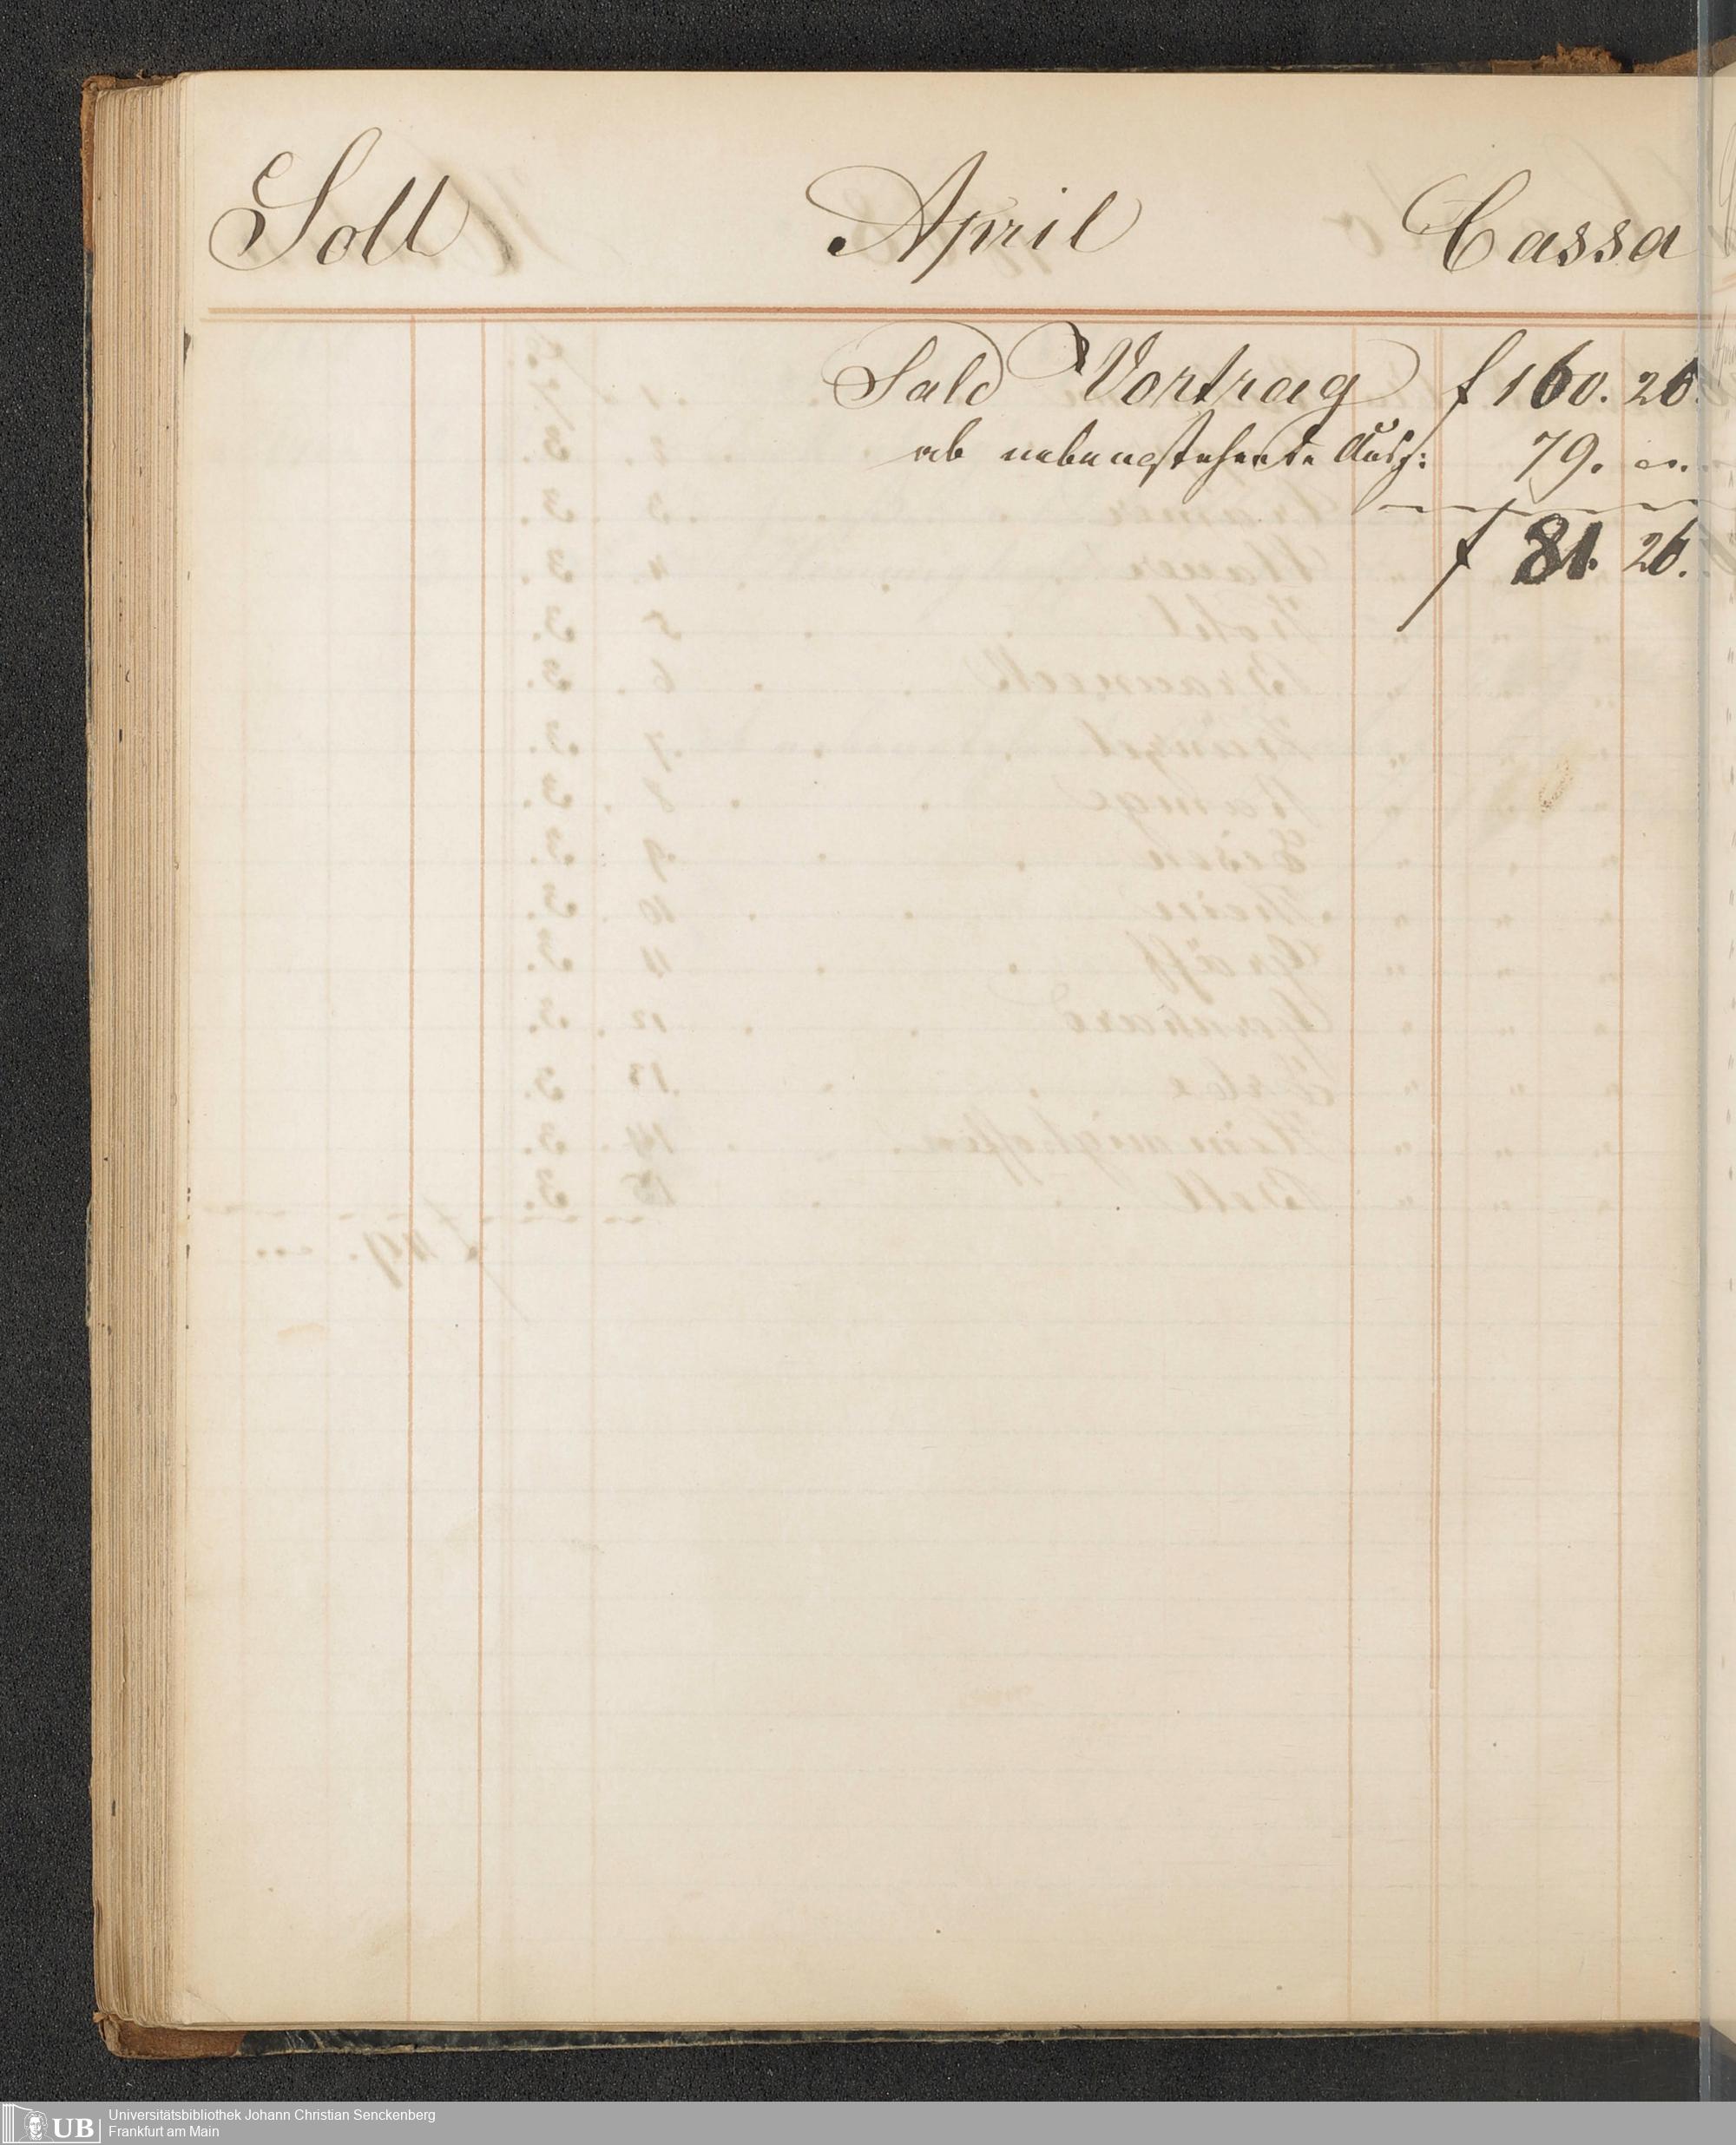 Soll April Cassa
Sald Vortrag f 160. 26.
ab nebenstehende Ausg: 79. „
f 81. 26.
UB Universitätsbibliothek Johann Christian Senckenberg
Frankfurt am Main